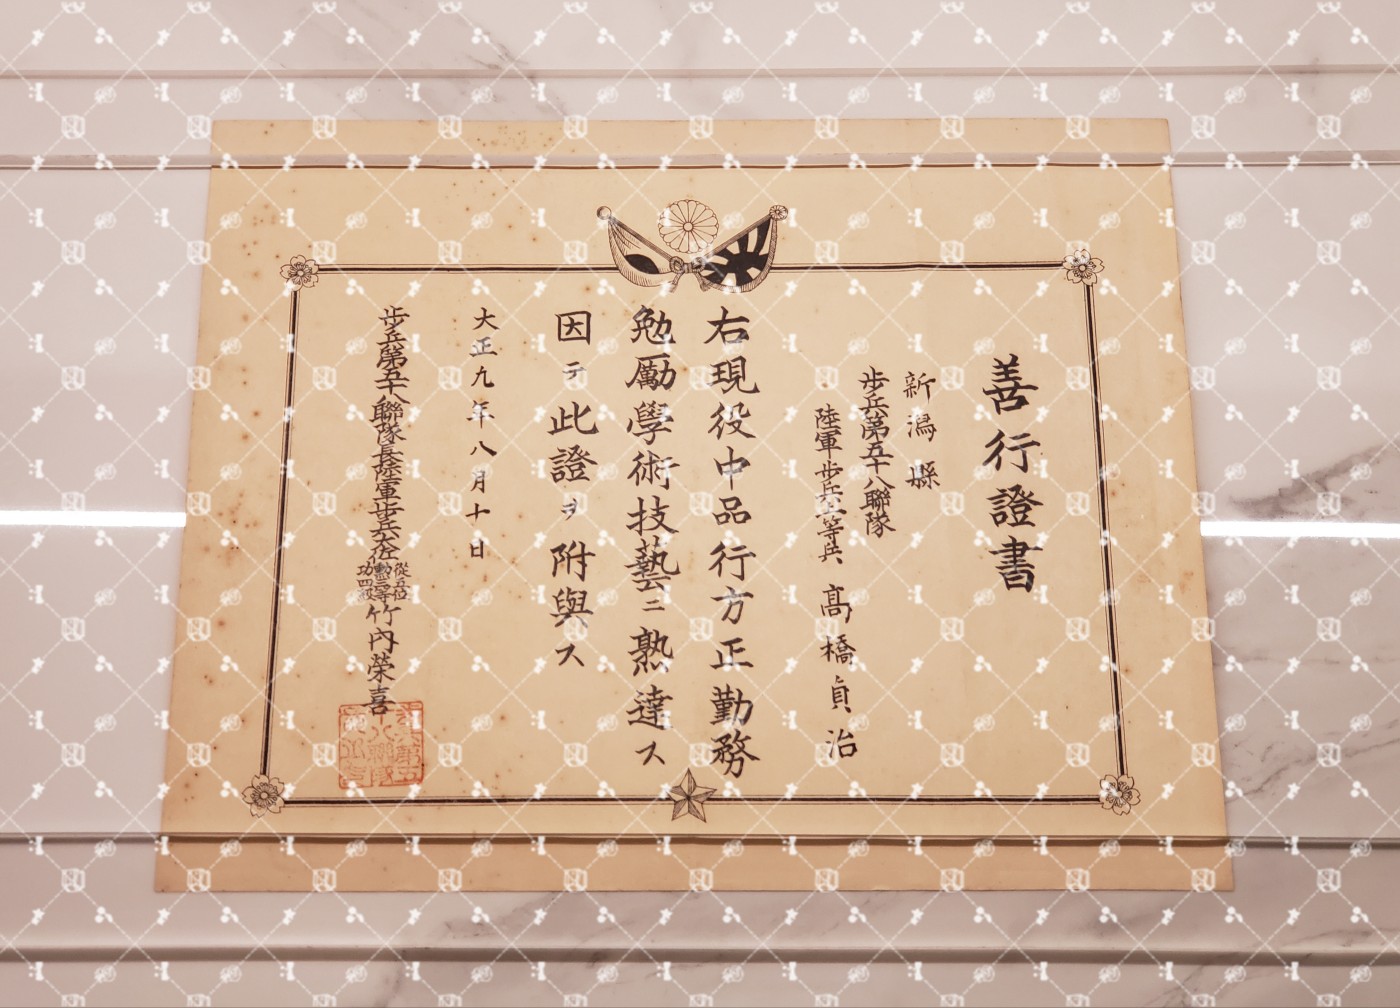 善行證書
新潟縣
歩兵第五十八聯隊
陸軍歩兵一等兵 髙橋貞治
右現役中品行方正勤務
勉勵學術技藝ニ熟達ス
因テ此證ヲ附與ス
大正九年八月十日
歩兵第五十八聯隊長陸軍歩兵大佐從五位勳三等功四級竹内榮喜